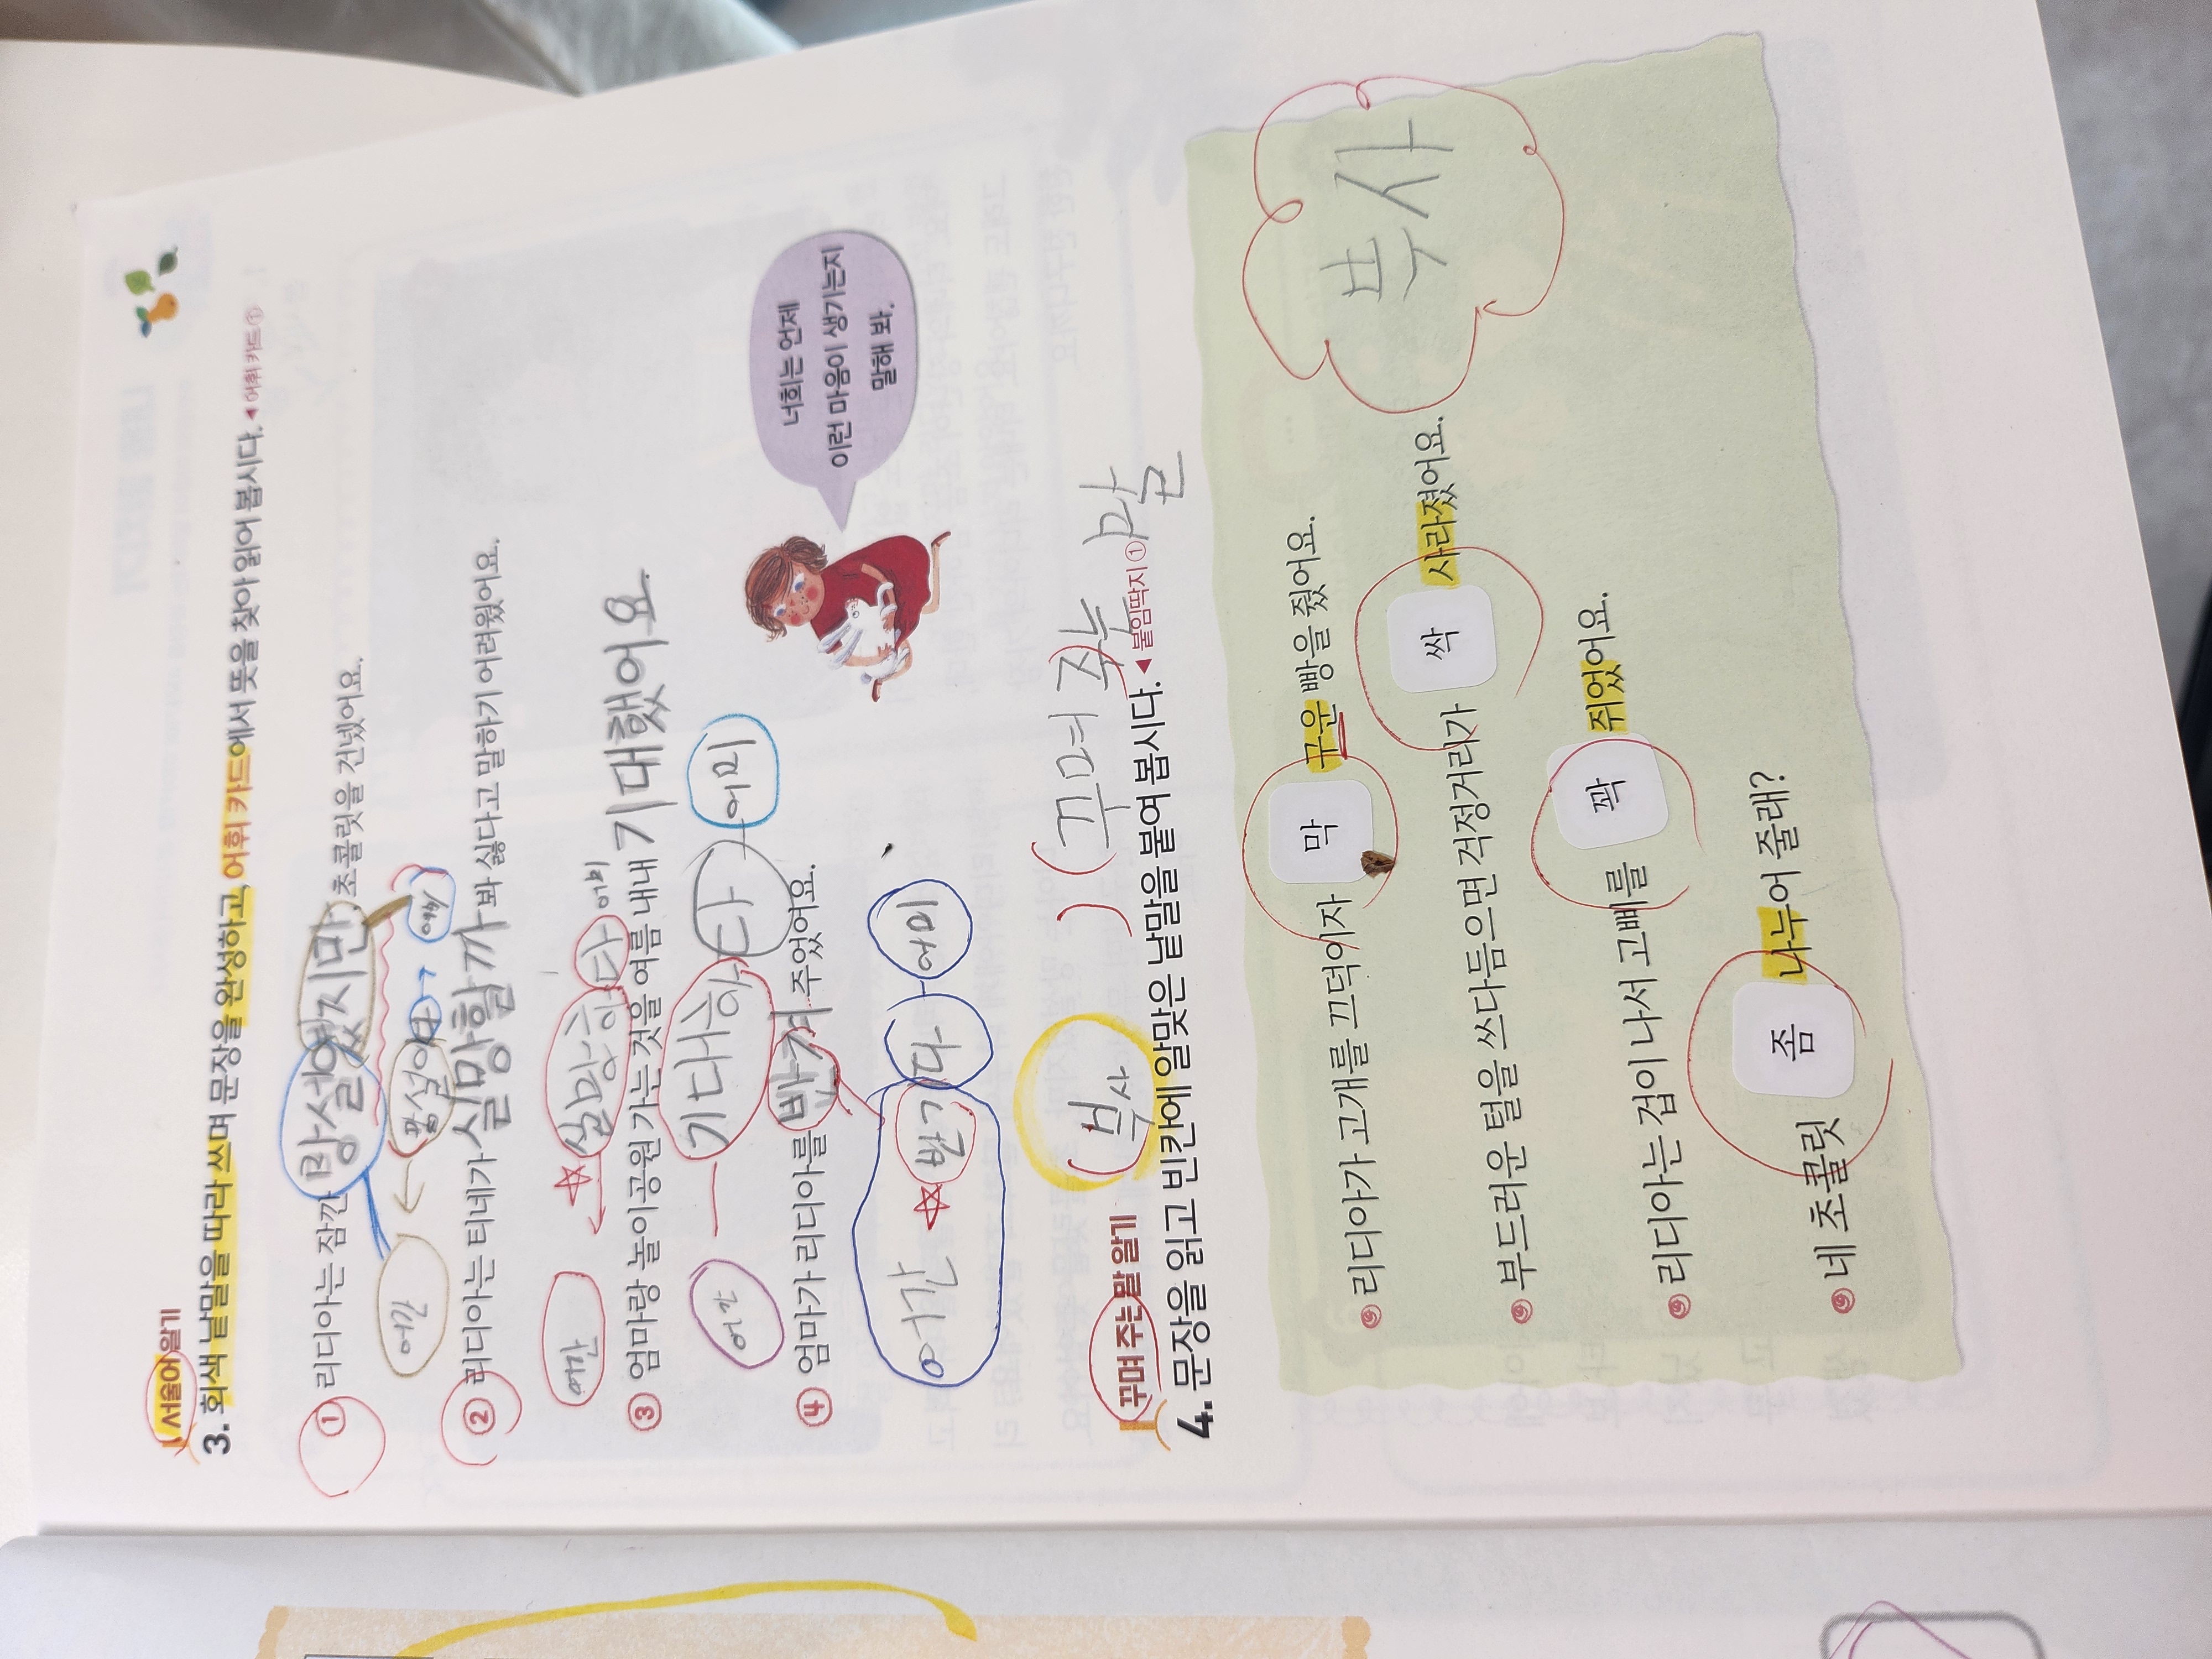 서술어 알기
3. 회색 낱말을 따라 쓰며 문장을 완성하고, 어휘 카드에서 뜻을 찾아 읽어 봅시다. ◀ 어휘 카드 ①
① 리디아는 잠깐 망설였지만, 초콜릿을 건넸어요.
어간 망설이다 어미
② 리디아는 티네가 실망할까 봐 싫다고 말하기 어려웠어요.
어간 ☆ 실망하다 어미
③ 엄마랑 놀이공원 가는 것을 여름 내내 기대했어요.
어간 기대하다 어미
④ 엄마가 리디아를 반겨 주었어요.
어간 ☆ 반기다 어미
너희는 언제
이런 마음이 생기는지
말해 봐.
꾸며 주는 말 알기 (부사) (꾸며 주는 말
4. 문장을 읽고 빈칸에 알맞은 낱말을 붙여 봅시다. ◀ 붙임딱지 ①
리디아가 고개를 끄덕이자 막 구운 빵을 줬어요.
부드러운 털을 쓰다듬으면 걱정거리가 싹 사라졌어요.
부사
리디아는 겁이 나서 고삐를 꽉 쥐었어요.
네 초콜릿 좀 나누어 줄래?